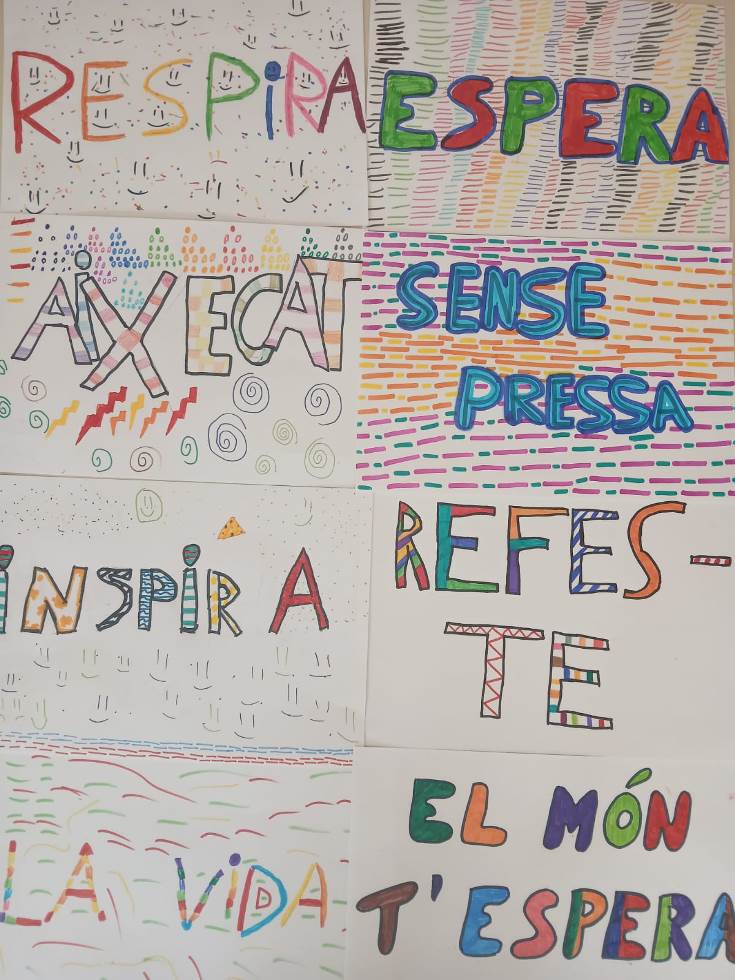 RESPiRA
ESPERA
AiXECAT
SENSE
PRESSA
iNSPiRA
REFES-
TE
LA ViDA
EL MÓN
T'ESPERA